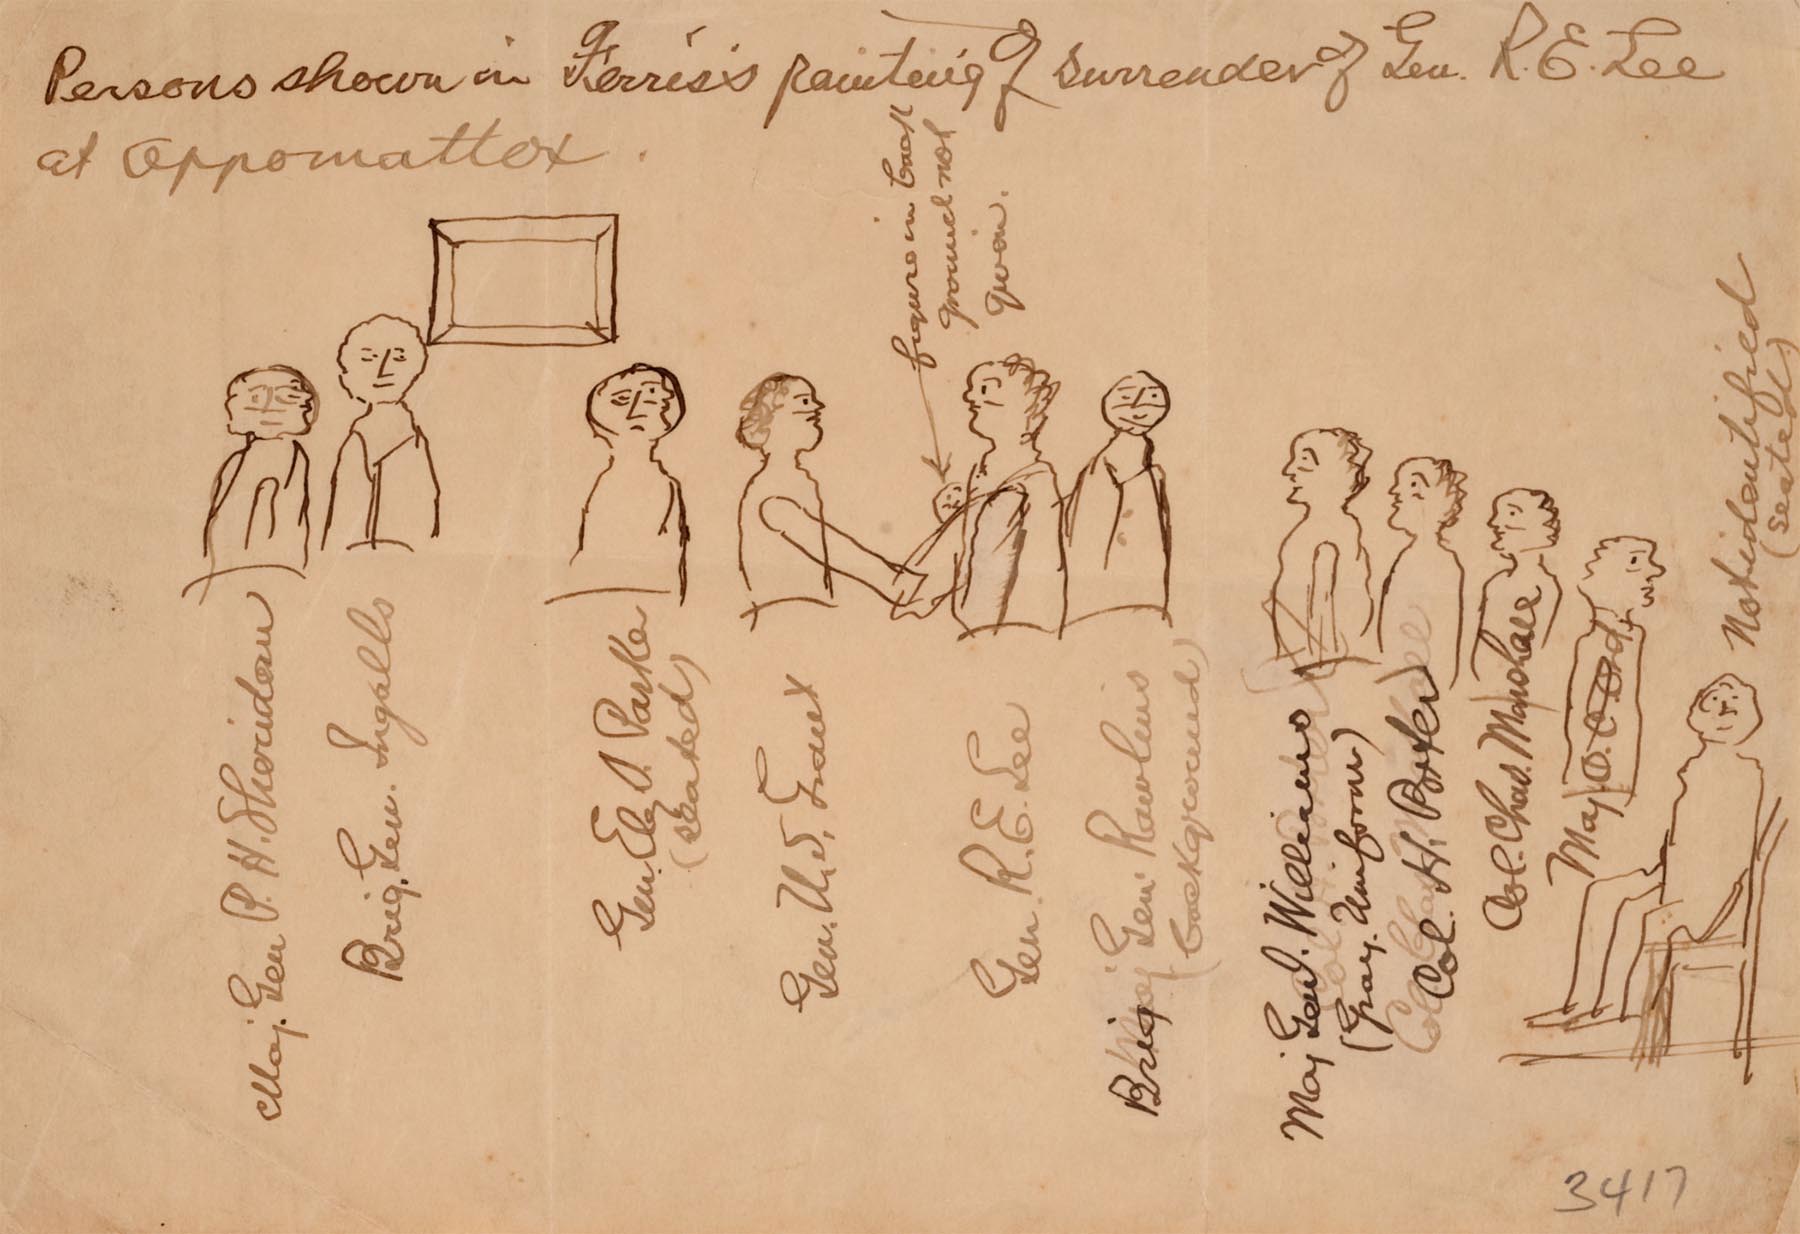 Persons shown in Ferris's painting of surrender of Gen. R. E. Lee
at Appomattox.
Maj. Gen P. H. Sheridan
Brig. Gen. Ingalls
Gen. Ely S. Parker
(seated)
Gen. U. S. Grant
figure in back
ground not
given.
Gen. R. E. Lee
Brig Gen. Rawlins
(background)
Maj Gen S. Williams
(Gray. Uniform)
Col. H. Porter
Col. Chas. Marshall
Maj O. C. Ord
Not identified
(seated)
3417